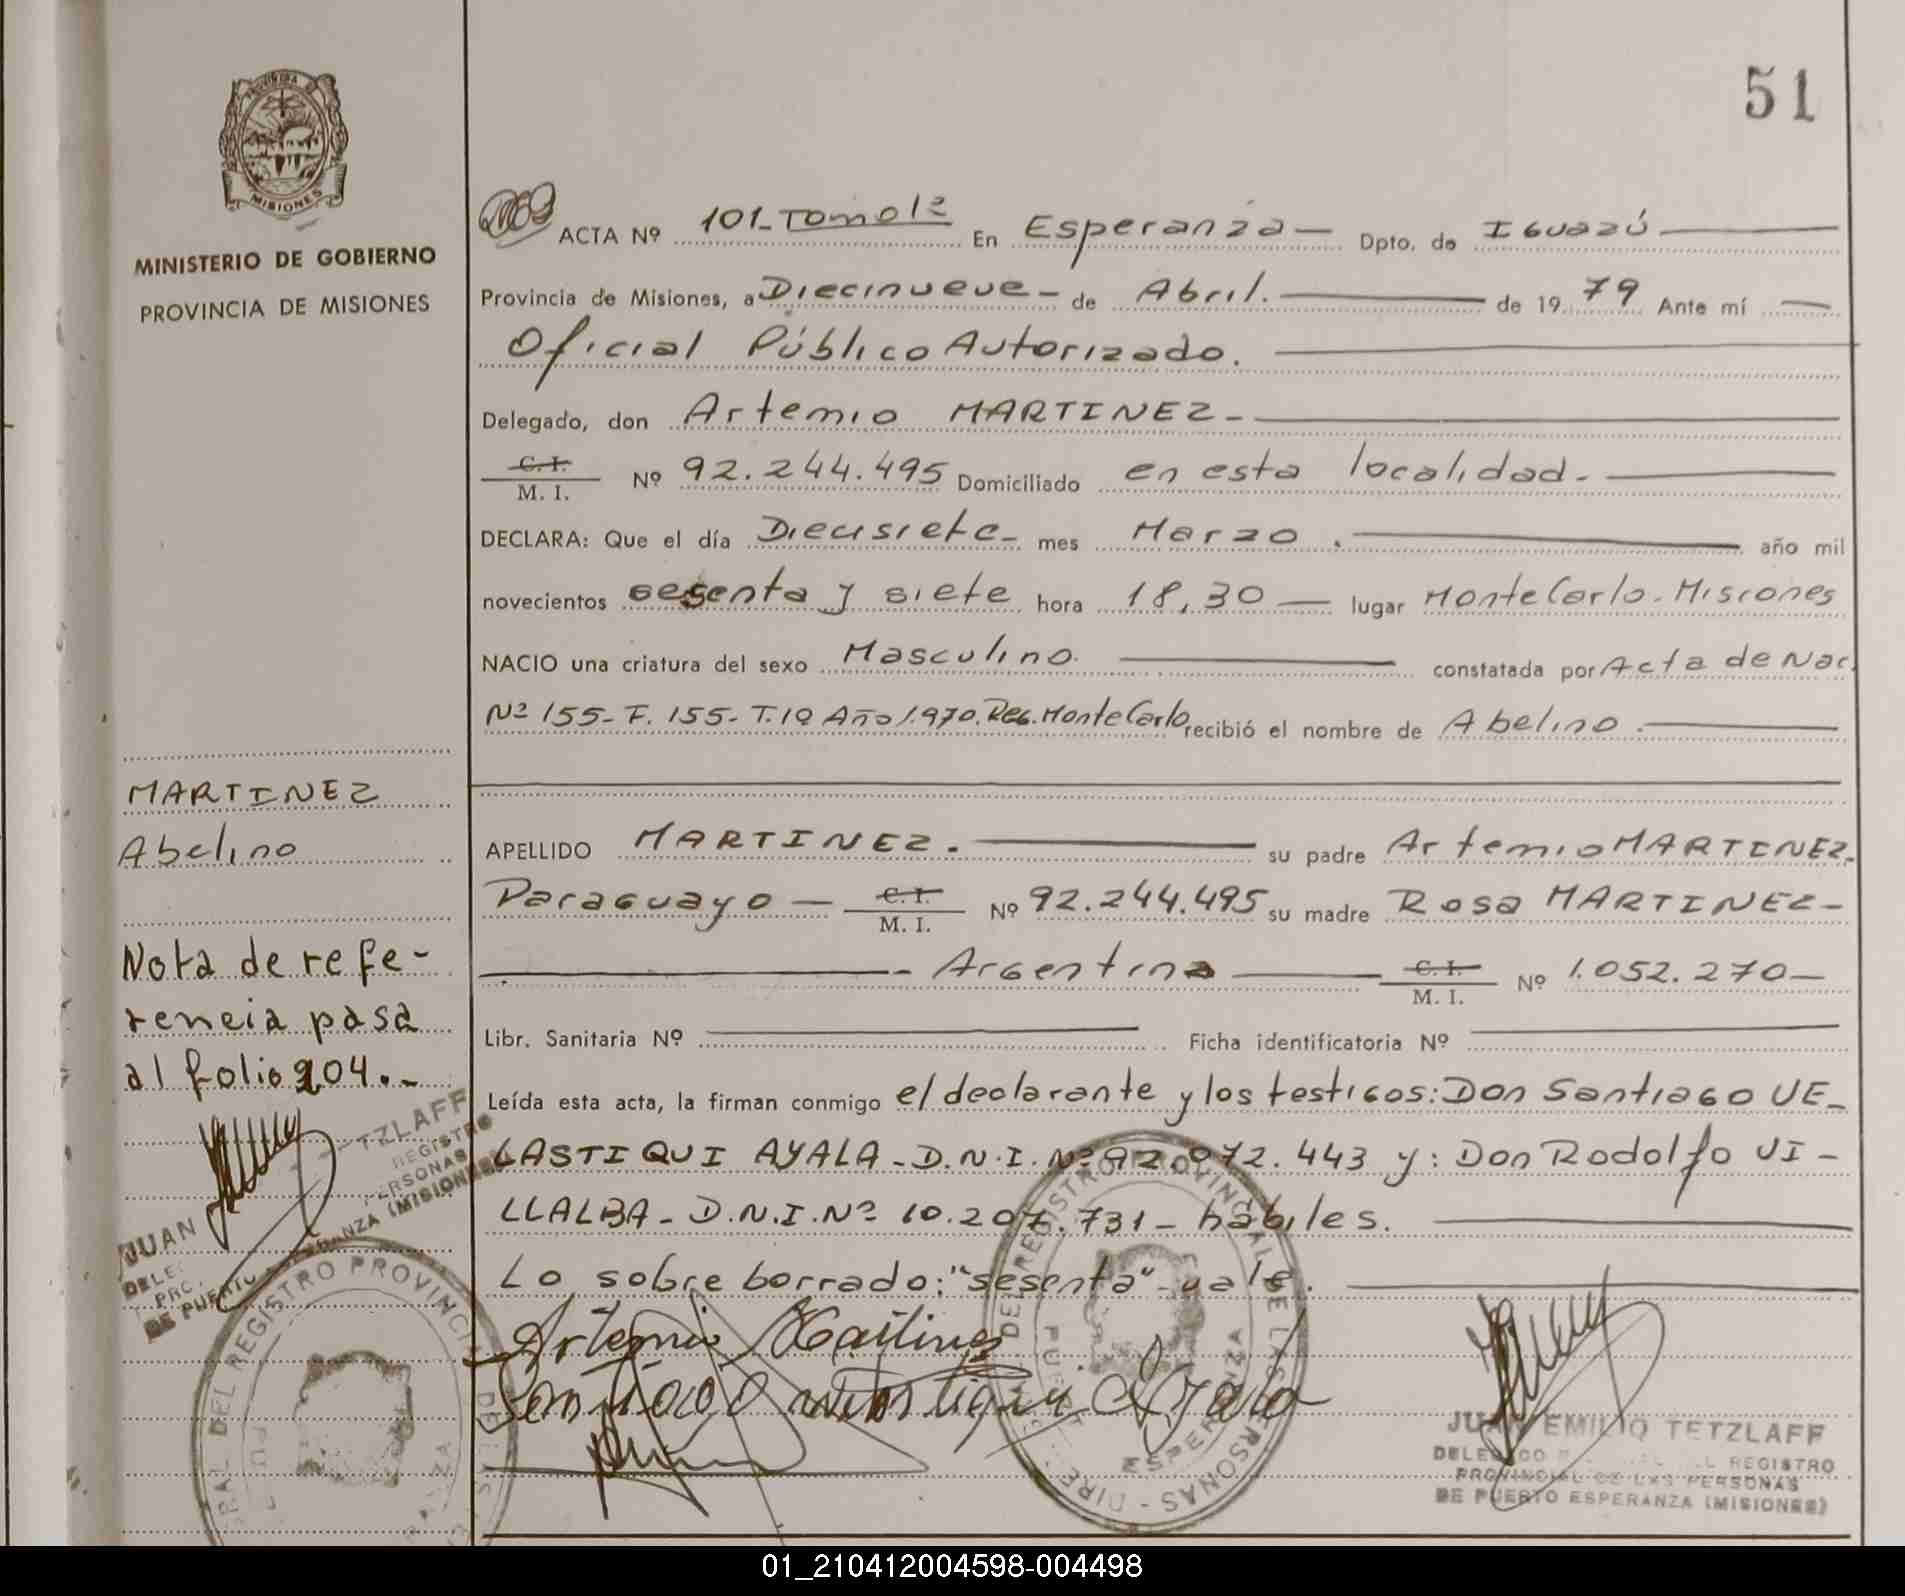 51
PROVINCIA DE
MISIONES
MINISTERIO DE GOBIERNO
PROVINCIA DE MISIONES
ACTA Nº 101_Tomo 1º En Esperanza — Dpto. de Iguazú
Provincia de Misiones, a Diecinueve - de Abril. de 19 79 Ante mí
Oficial Público Autorizado.
Delegado, don Artemio MARTINEZ -
C. I.
M. I. Nº 92.244.495 Domiciliado en esta localidad.
DECLARA: Que el día Diecisiete - mes Marzo. año mil
novecientos sesenta y siete hora 18,30 — lugar Monte Carlo - Misiones
NACIO una criatura del sexo Masculino. constatada por Acta de Nac.
Nº 155 - F. 155 - T. 1º Año 1.970. Reg. Monte Carlo, recibió el nombre de Abelino.
MARTINEZ
Abelino
APELLIDO MARTINEZ. su padre Artemio MARTINEZ.
Paraguayo — C. I.
M. I. Nº 92.244.495 su madre Rosa MARTINEZ -
Argentina C. I.
M. I. Nº 1.052.270 —
Libr. Sanitaria Nº Ficha identificatoria Nº
Leída esta acta, la firman conmigo el declarante y los testigos: Don Santiago VE_
LASTIQUI AYALA - D.N.I. Nº 92.072.443 y: Don Rodolfo VI -
LLALBA - D.N.I. Nº 10.207.731 - hábiles.
Lo sobre borrado: "sesenta" - vale.
Nota de refe-
rencia pasa
al folio 204.-
JUAN TETZLAFF
REGISTRO
PERSONAS
DE PUERTO ESPERANZA (MISIONES)
DEL REGISTRO PROVINCIAL
Artemio Martinez
Santiago Velastiqui Ayala
DEL REGISTRO PROVINCIAL DE LAS PERSONAS - DIRE
ESPERANZA
JUAN EMILIO TETZLAFF
DELEGADO REGISTRO
PROVINCIAL DE LAS PERSONAS
DE PUERTO ESPERANZA (MISIONES)
01_210412004598-004498